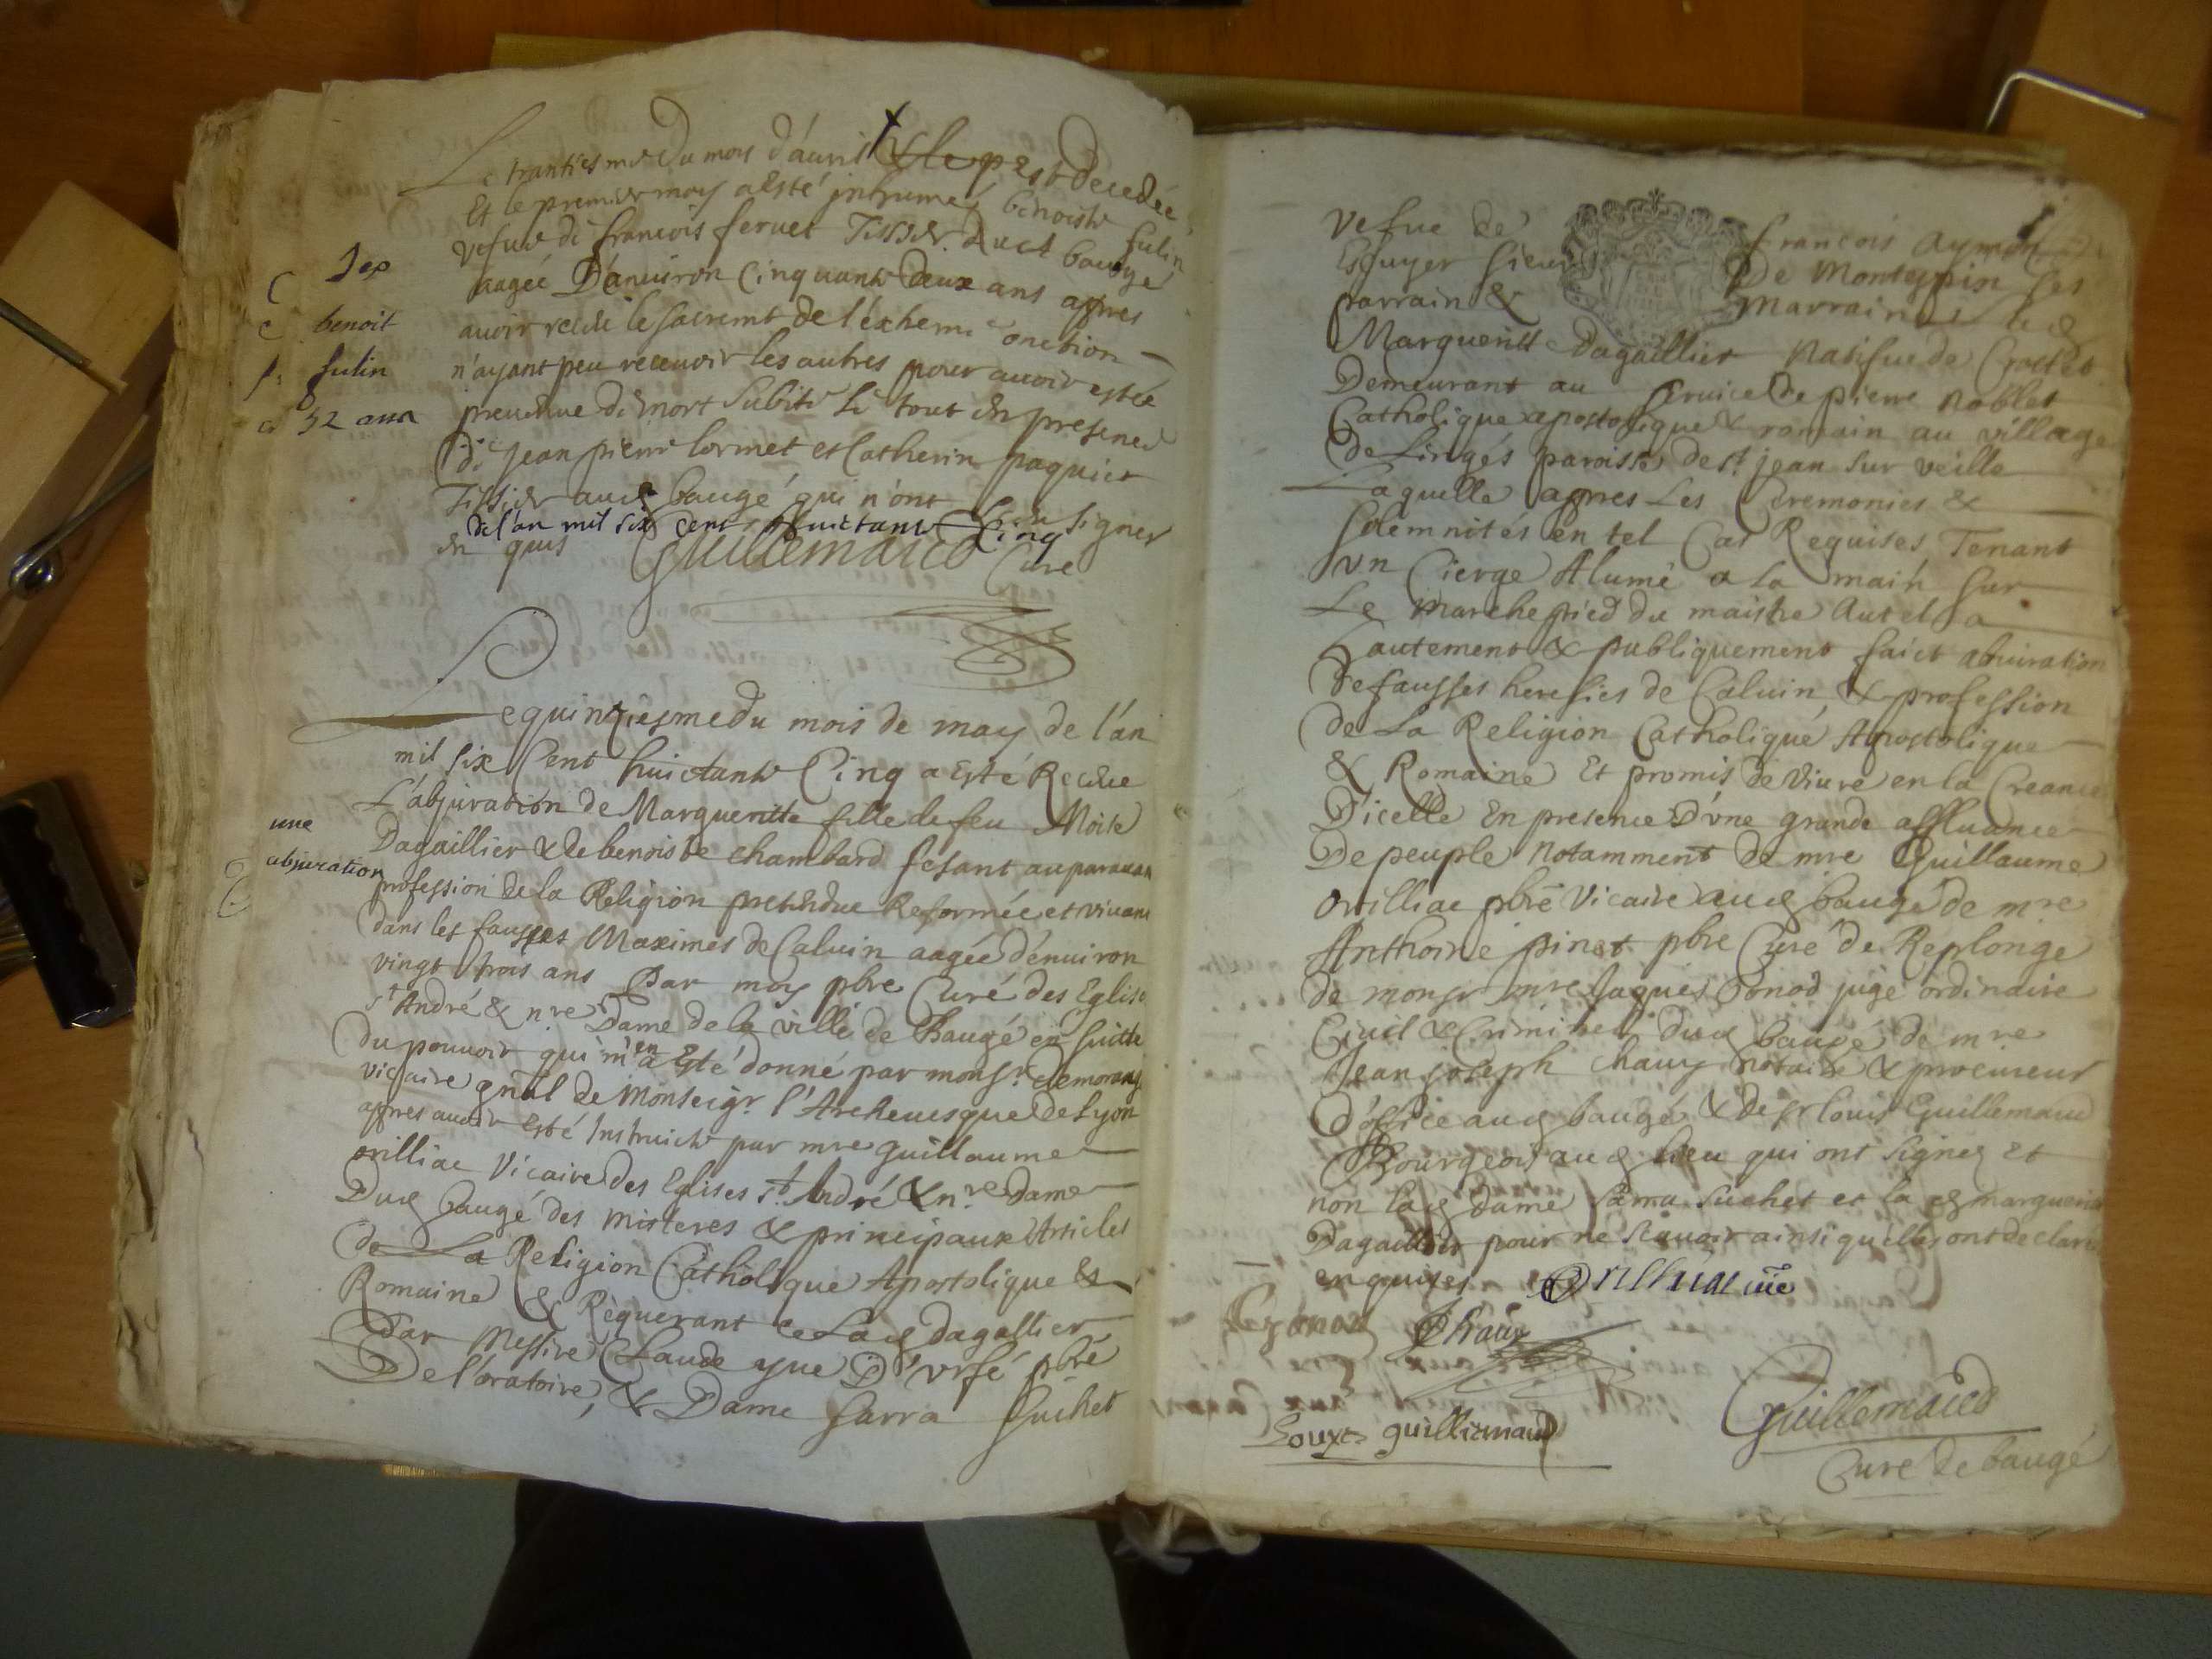 Le trantiesme du mois d'auril est decedée
Et le premier may a Esté inhumée benoiste fulin
vefue de françois feruet Tissier dud baugé
aagée D'anuiron Cinquante deux ans apres
auoir receu le sacremt de l'exheme onction
n'ayant peu receuoir les autres pour auoir estée
preuenue de mort subite Le tout En presence
de Jean pierre lormet et Catherin paquier
Tissier aud baugé qui n'ont sceu signer
de l'an mil six cent huictante Cinq
En quis Guillemaud Curé
Sep
benoit
fulin
52 ans
Le quinziesme du mois de may de l'an
mil six Cent huictante Cinq a Esté Receue
L'abjuration de Margueritte fille de feu Moise
Dagaillier & de benoiste chambard fesant auparauan
profession de la Religion pretendue Reformée et viuant
dans les fausses Maximes de Caluin aagée d'enuiron
vingt trois ans Par moy pbre Curé des Eglise
st André & nre Dame de la ville de Baugé en suitte
du pouuoir qui m'en a Esté donné par monsr demorang
vicaire gnal de Monseigr l'Archeuesque de Lyon
apres auoir Esté Instruicte par mre guillaume
orilliac Vicaire des Eglises st André & nre Dame
Dud baugé des misteres & principaux Articles
de La Religion Catholique Apostolique &
Romaine & Requerant Lad dagallier
Par Messire Claude yue D'vrfé pbre
De l'oratoire, & Dame sarra suchet
une
abjuration
vefue de françois aymon
Escuyer sieur De Monteppin Ses
parrain & marraine Lad
Margueritte Dagaillier natifue de Crottet
Demeurant au seruice de pierre noblet
Catholique apostolique & romain au village
de Lingés paroisse de st jean sur veille
Laquelle apres Les Ceremonies &
solemnités en tel Cas Requises Tenant
vn Cierge Alumé a La main sur
Le marchepied du maistre Autel a
hautement & publiquement faict abiuration
de fausses heresies de Caluin, & profession
de La Religion Catholique Apostolique
& Romaine Et promis de viure en la Creance
D'icelle En presence D'vne grande affluance
De peuple notamment de mre Guillaume
Orilliac pbre Vicaire aud baugé de mre
Anthoine pinet pbre Curé de Replonge
de monsr mre Jaques Bonod juge ordinaire
Ciuil & Criminel dud baugé de mre
Jean joseph chaux notaire & procureur
d'office aud baugé & de sr louis Guillemaud
Bourgeois aud lieu qui ont signez Et
non lad dame sarra suchet et la d margueritte
Dagaillier pour ne scauoir ainsi quelles ont declaré
enquises Orilliac vic
Chaux
Guillemaud
Louys guilliemaud
Curé de baugé